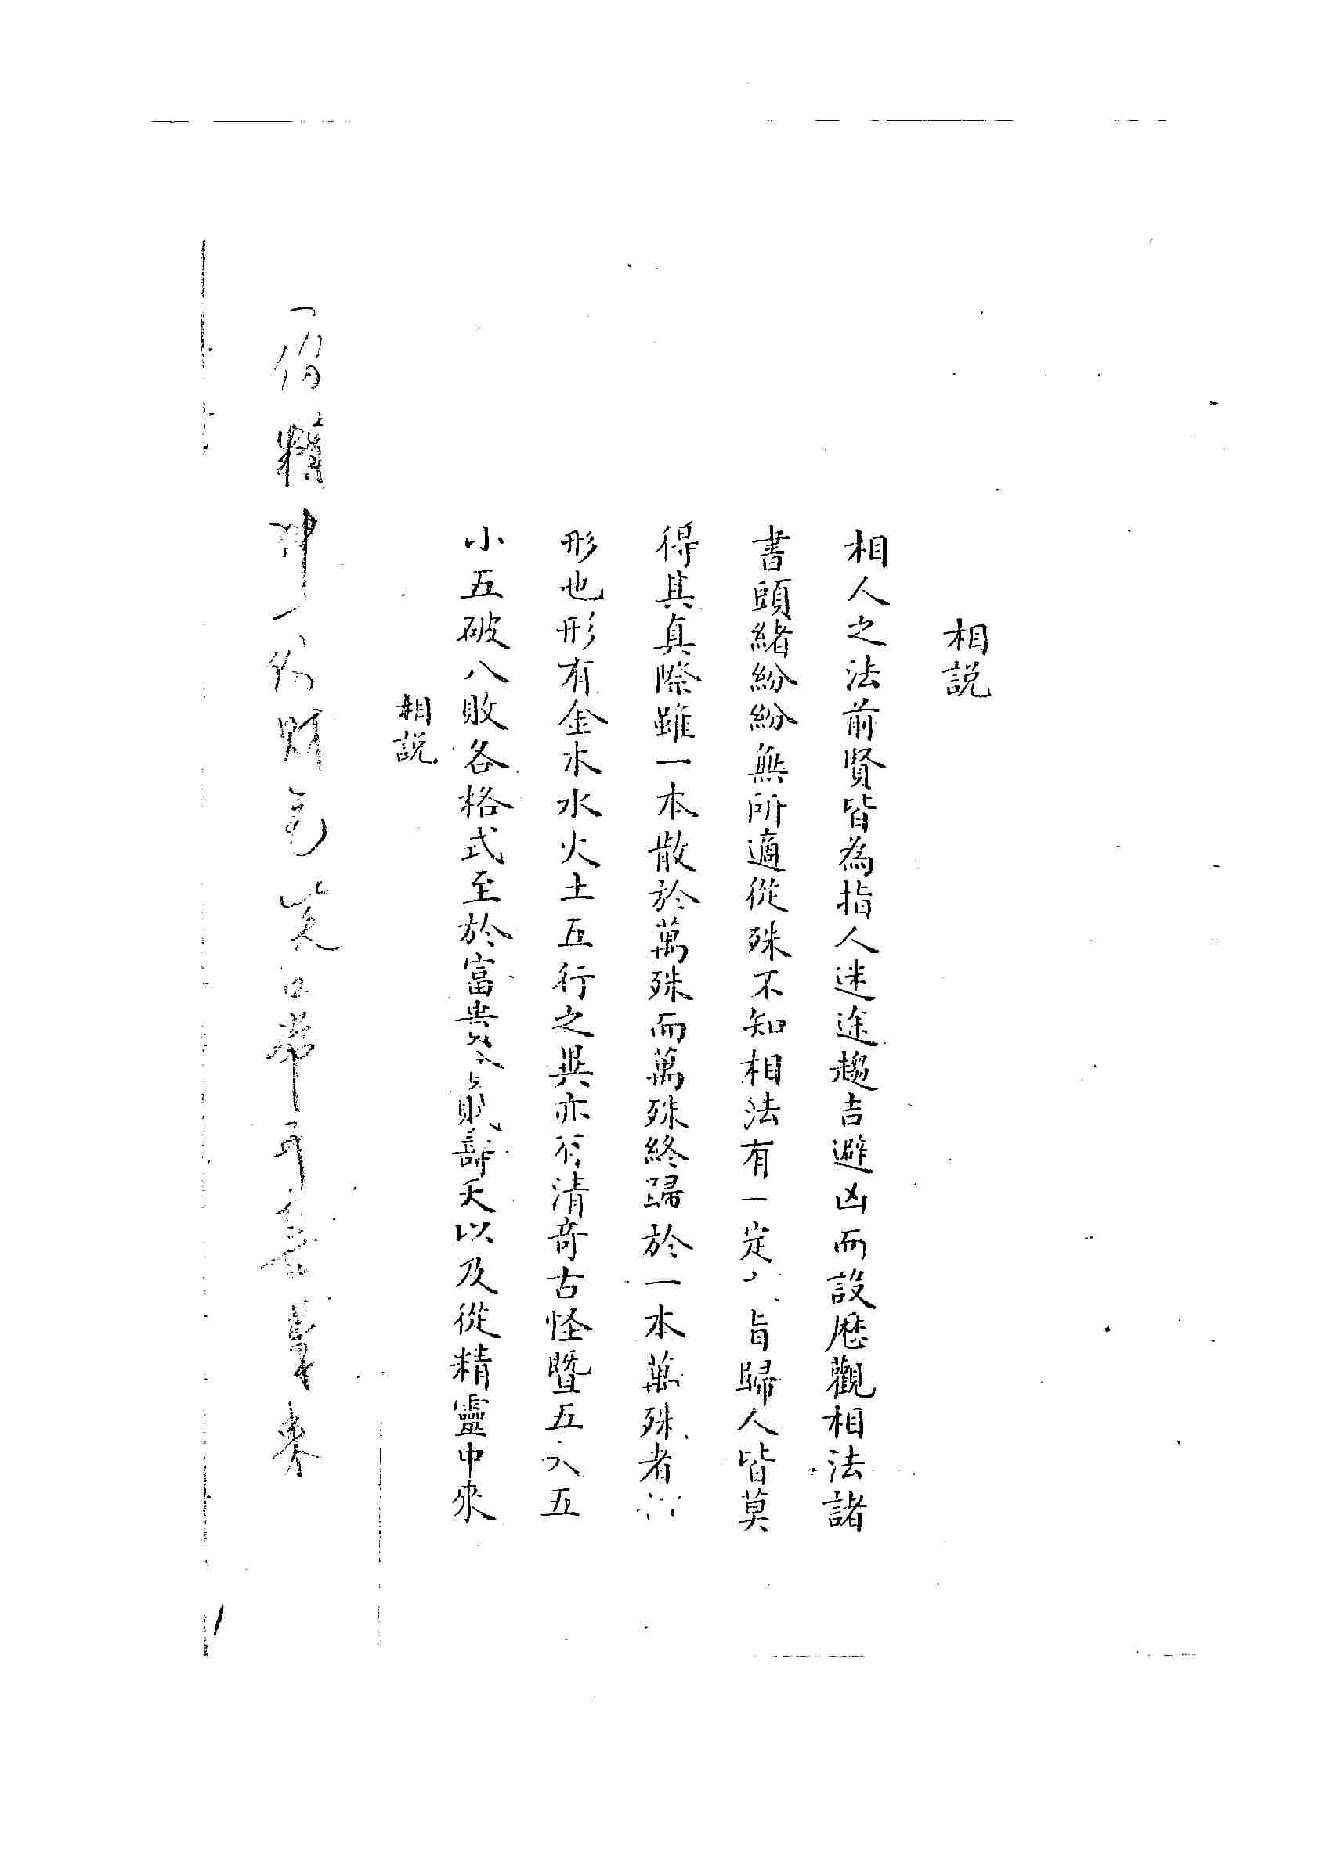 相説
相人之法前賢皆為指人迷途趨吉避凶而設歷觀相法諸
書頭緒紛紛無所適從殊不知相法有一定旨歸人皆莫
得其真際雖一本散於萬殊而萬殊終歸於一本萬殊者
形也形有金木水火土五行之異亦有清奇古怪暨五大五
小五破八敗各格式至於富貴貧賤壽夭以及從精靈中來
相説
一份精神一份財
來